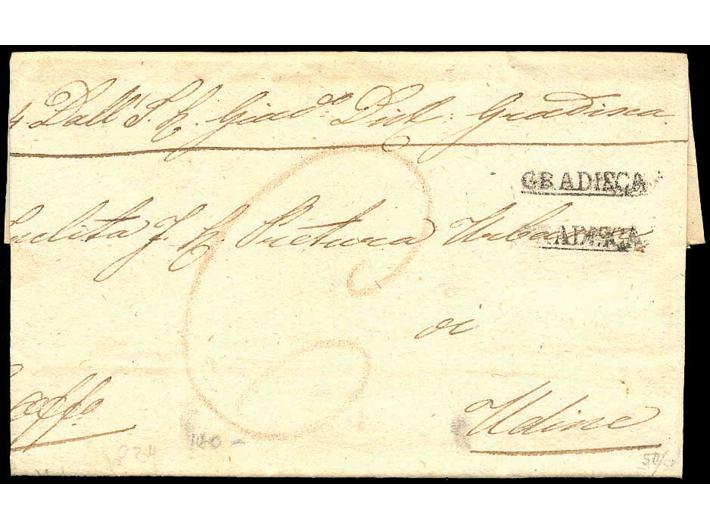 4 Dall' I. R. Giud.º Dist. Gradisca
GRADISCA
Inclita I. R. Pretura Urbana
GRADISCA
di
Udine
824
100 -